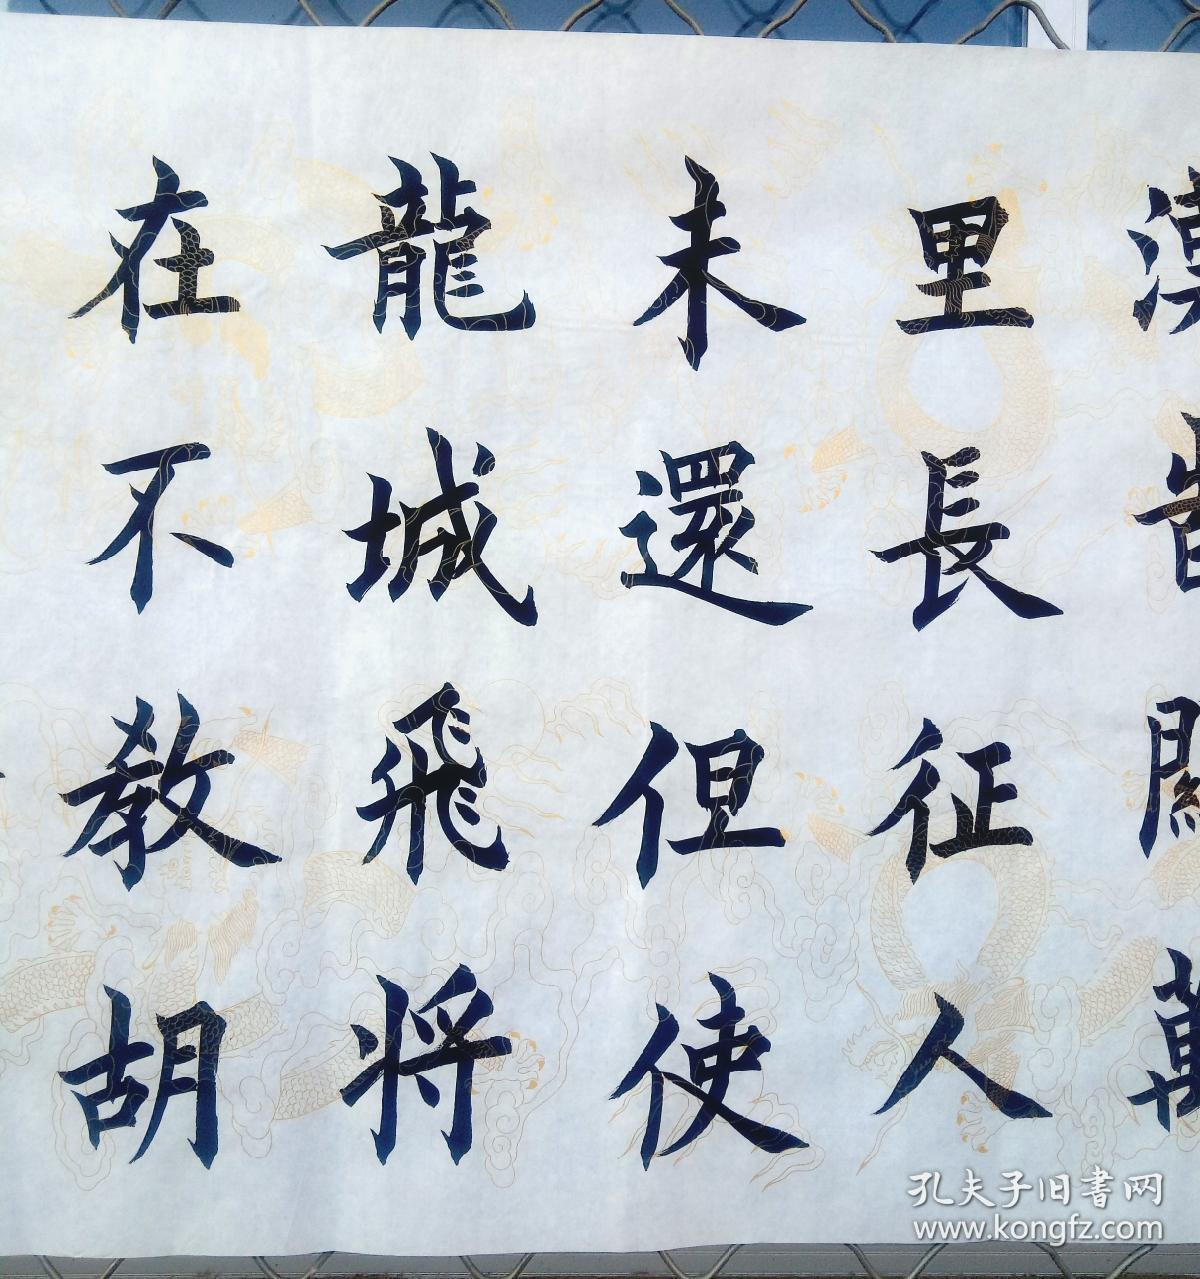 漢旹關萬
里長征人
未還但使
龍城飛将
在不教胡
孔夫子旧書网
www.kongfz.com